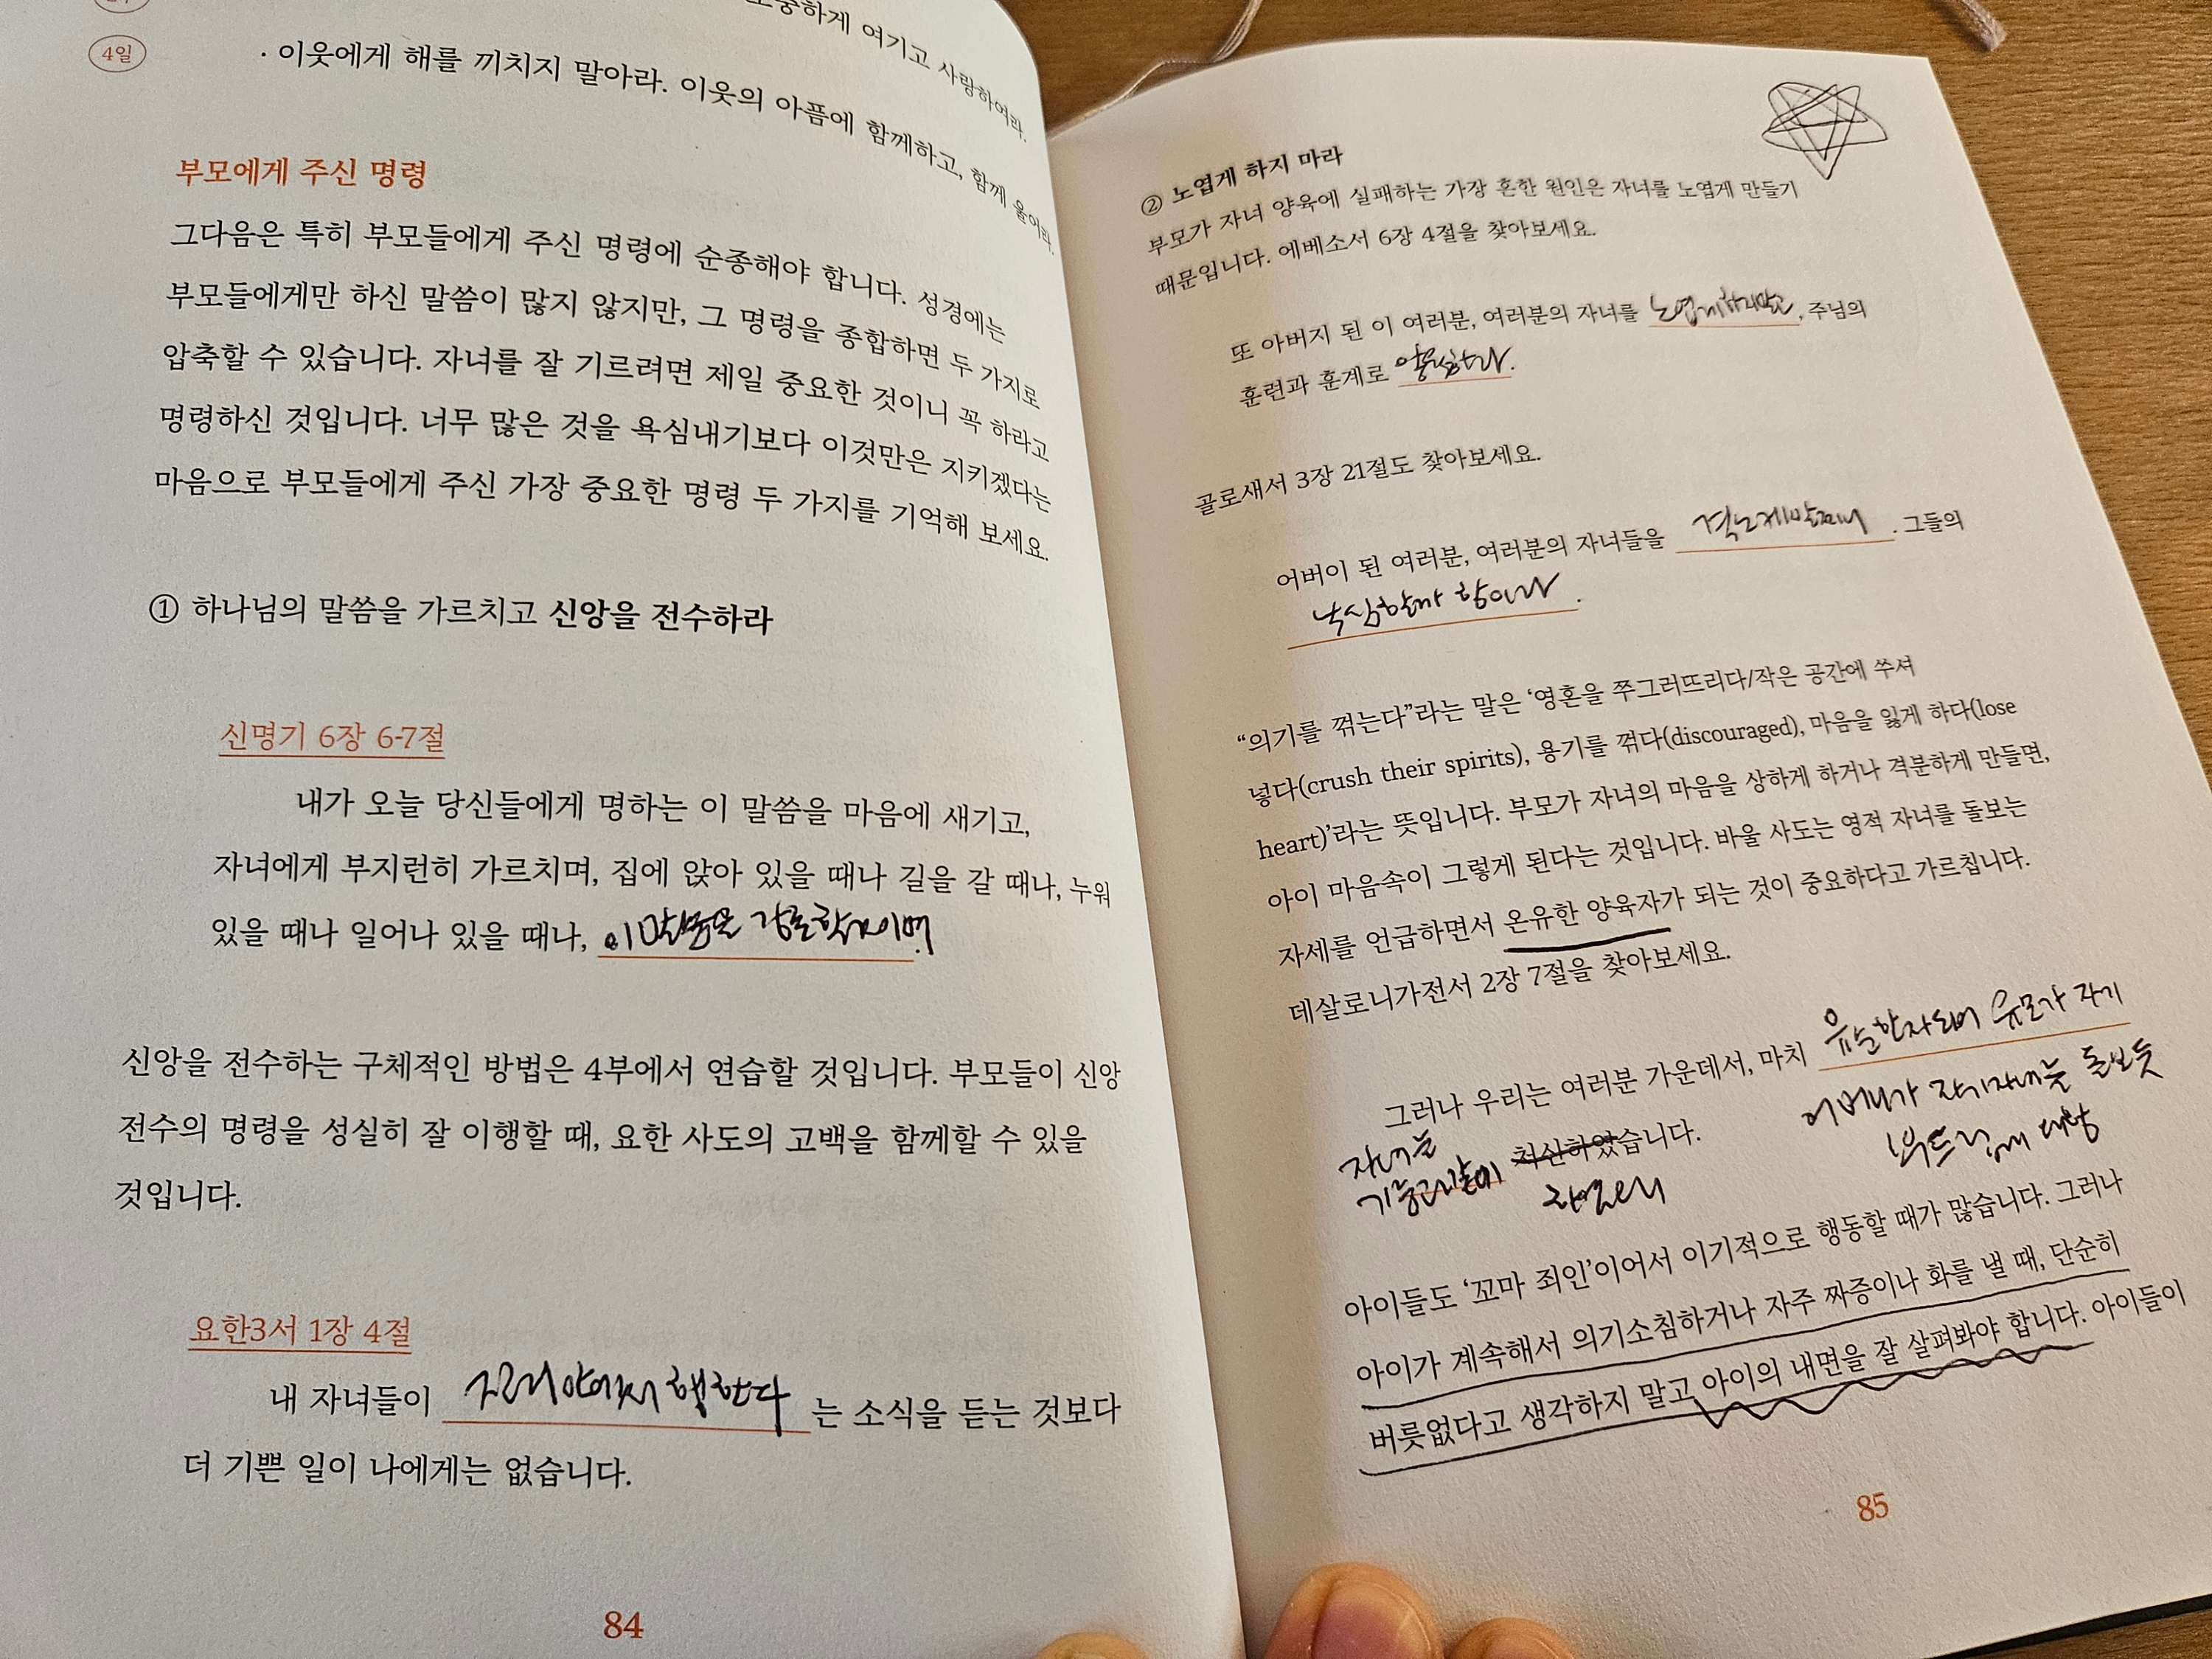 4일
소중하게 여기고 사랑하여라.
· 이웃에게 해를 끼치지 말아라. 이웃의 아픔에 함께하고, 함께 울어라.
부모에게 주신 명령
그다음은 특히 부모들에게 주신 명령에 순종해야 합니다. 성경에는
부모들에게만 하신 말씀이 많지 않지만, 그 명령을 종합하면 두 가지로
압축할 수 있습니다. 자녀를 잘 기르려면 제일 중요한 것이니 꼭 하라고
명령하신 것입니다. 너무 많은 것을 욕심내기보다 이것만은 지키겠다는
마음으로 부모들에게 주신 가장 중요한 명령 두 가지를 기억해 보세요.
① 하나님의 말씀을 가르치고 신앙을 전수하라
신명기 6장 6-7절
내가 오늘 당신들에게 명하는 이 말씀을 마음에 새기고,
자녀에게 부지런히 가르치며, 집에 앉아 있을 때나 길을 갈 때나, 누워
있을 때나 일어나 있을 때나, 이 말씀을 강론할것이며.
신앙을 전수하는 구체적인 방법은 4부에서 연습할 것입니다. 부모들이 신앙
전수의 명령을 성실히 잘 이행할 때, 요한 사도의 고백을 함께할 수 있을
것입니다.
요한3서 1장 4절
내 자녀들이 진리안에서 행한다 는 소식을 듣는 것보다
더 기쁜 일이 나에게는 없습니다.
84
② 노엽게 하지 마라
부모가 자녀 양육에 실패하는 가장 흔한 원인은 자녀를 노엽게 만들기
때문입니다. 에베소서 6장 4절을 찾아보세요.
또 아버지 된 이 여러분, 여러분의 자녀를 노엽게하지말고, 주님의
훈련과 훈계로 양육하라.
골로새서 3장 21절도 찾아보세요.
어버이 된 여러분, 여러분의 자녀들을 격노케말찌니. 그들의
낙심할까 함이라.
“의기를 꺾는다”라는 말은 ‘영혼을 쭈그러뜨리다/작은 공간에 쑤셔
넣다(crush their spirits), 용기를 꺾다(discouraged), 마음을 잃게 하다(lose
heart)’라는 뜻입니다. 부모가 자녀의 마음을 상하게 하거나 격분하게 만들면,
아이 마음속이 그렇게 된다는 것입니다. 바울 사도는 영적 자녀를 돌보는
자세를 언급하면서 온유한 양육자가 되는 것이 중요하다고 가르칩니다.
데살로니가전서 2장 7절을 찾아보세요.
그러나 우리는 여러분 가운데서, 마치 유순한자되어 유모가 자기
어머니가 자기자녀를 돌보듯
부드럽게 대함
자녀를
기름과같이 처신하였습니다.
하였으니
아이들도 ‘꼬마 죄인’이어서 이기적으로 행동할 때가 많습니다. 그러나
아이가 계속해서 의기소침하거나 자주 짜증이나 화를 낼 때, 단순히
버릇없다고 생각하지 말고 아이의 내면을 잘 살펴봐야 합니다. 아이들이
85